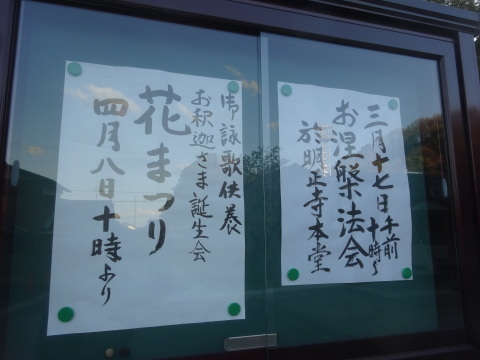 三月十七日午前十時ら
お涅槃法会
於明正寺本堂
御詠歌供養
お釈迦さま誕生会
花まつり
四月八日十時より